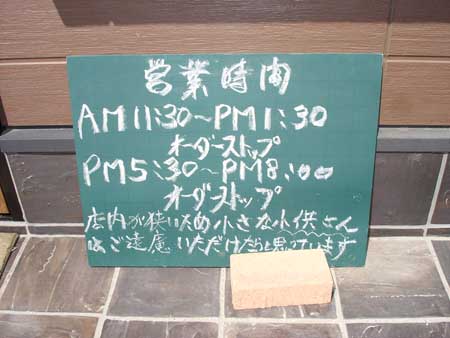 営業時間
AM 11:30〜PM 1:30
オーダーストップ
PM 5:30〜PM 8:00
オーダストップ
店内が狭いため小さな小供さん
はご遠慮いただけたらと思っています